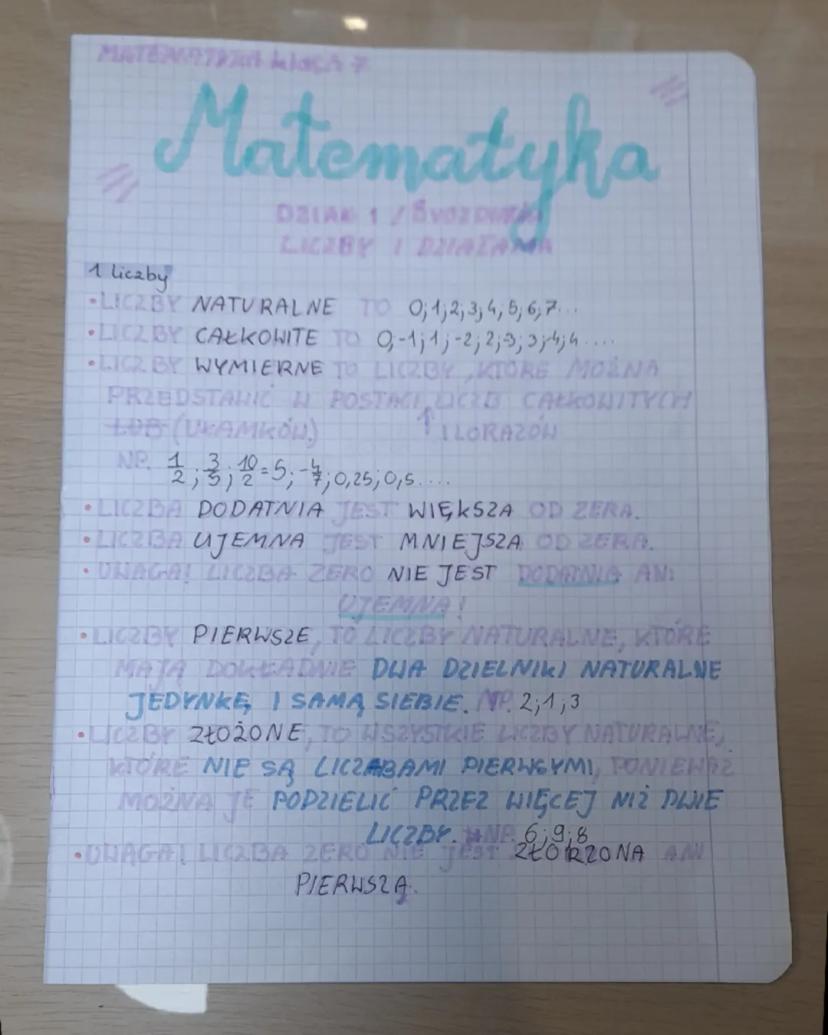 MATEMATYKA klasa 7
Matematyka
DZIAŁ 1 /
LICZBY I DZIAŁANIA
1 Liczby
• LICZBY NATURALNE TO 0;1;2;3;4;5;6;7...
• LICZBY CAŁKOWITE TO 0;-1;1;-2;2;-3;3;-4;4....
• LICZBY WYMIERNE TO LICZBY, KTÓRE MOŻNA
PRZEDSTAWIĆ W POSTACI LICZB CAŁKOWITYCH
LUB (UŁAMKÓW) ↑ ILORAZÓW
NP. 1/2; 3/5; 10/2=5; -4/7; 0,25; 0,5....
• LICZBA DODATNIA JEST WIĘKSZA OD ZERA.
• LICZBA UJEMNA JEST MNIEJSZA OD ZERA.
• UWAGA! LICZBA ZERO NIE JEST DODATNIA ANI
UJEMNA!
• LICZBY PIERWSZE, TO LICZBY NATURALNE, KTÓRE
MAJĄ DOKŁADNIE DWA DZIELNIKI NATURALNE
JEDYNKĘ I SAMĄ SIEBIE. NP. 2;1;3
• LICZBY ZŁOŻONE, TO WSZYSTKIE LICZBY NATURALNE,
KTÓRE NIE SĄ LICZBAMI PIERWSYMI, PONIEWAŻ
MOŻNA JE PODZIELIĆ PRZEZ WIĘCEJ NIŻ DWIE
LICZBY. NP. 6;9;8
• UWAGA! LICZBA ZERO NIE JEST ZŁORZONA ANI
PIERWSZĄ.